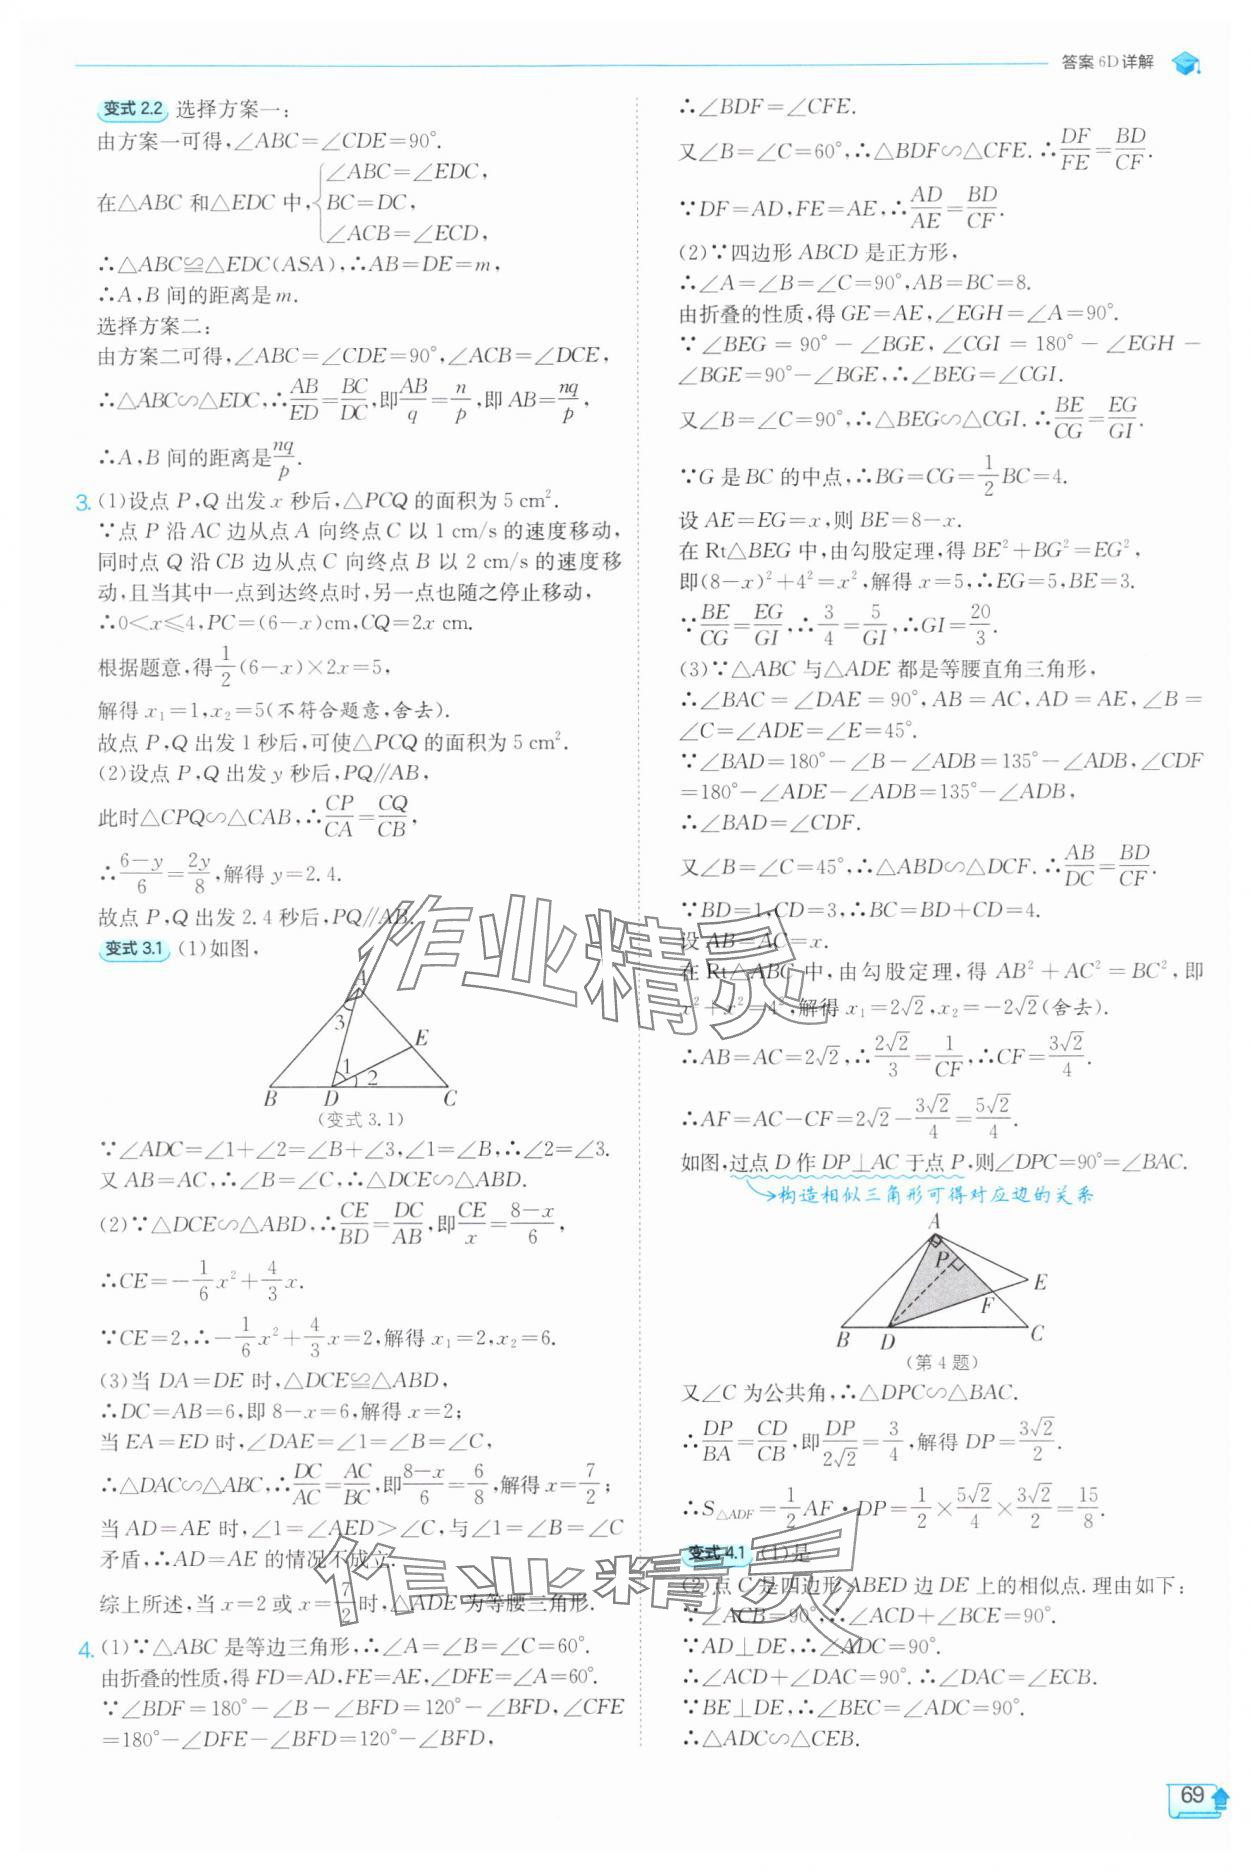 答案 6D 详解
变式 2.2 选择方案一:
由方案一可得,∠ABC=∠CDE=90°.
在△ABC 和△EDC 中,{∠ABC=∠EDC,
BC=DC,
∠ACB=∠ECD,
∴△ABC≌△EDC(ASA),∴AB=DE=m,
∴A,B 间的距离是 m.
选择方案二:
由方案二可得,∠ABC=∠CDE=90°,∠ACB=∠DCE,
∴△ABC∽△EDC,∴AB/ED=BC/DC,即AB/q=n/p,即 AB=nq/p,
∴A,B 间的距离是nq/p.
3. (1)设点 P,Q 出发 x 秒后,△PCQ 的面积为 5 cm².
∵点 P 沿 AC 边从点 A 向终点 C 以 1 cm/s 的速度移动,
同时点 Q 沿 CB 边从点 C 向终点 B 以 2 cm/s 的速度移
动,且当其中一点到达终点时,另一点也随之停止移动,
∴0<x≤4,PC=(6-x)cm,CQ=2x cm.
根据题意,得1/2(6-x)×2x=5,
解得 x₁=1,x₂=5(不符合题意,舍去).
故点 P,Q 出发 1 秒后,可使△PCQ 的面积为 5 cm².
(2)设点 P,Q 出发 y 秒后,PQ∥AB,
此时△CPQ∽△CAB,∴CP/CA=CQ/CB,
∴(6-y)/6=2y/8,解得 y=2.4.
故点 P,Q 出发 2.4 秒后,PQ∥AB.
变式 3.1 (1)如图,
A
3
E
1
2
B D C
(变式 3.1)
∵∠ADC=∠1+∠2=∠B+∠3,∠1=∠B,∴∠2=∠3.
又 AB=AC,∴∠B=∠C,∴△DCE∽△ABD.
(2)∵△DCE∽△ABD,∴CE/BD=DC/AB,即CE/x=(8-x)/6,
∴CE=-1/6x²+4/3x.
∵CE=2,∴-1/6x²+4/3x=2,解得 x₁=2,x₂=6.
(3)当 DA=DE 时,△DCE≌△ABD,
∴DC=AB=6,即 8-x=6,解得 x=2;
当 EA=ED 时,∠DAE=∠1=∠B=∠C,
∴△DAC∽△ABC,∴DC/AC=AC/BC,即(8-x)/6=6/8,解得 x=7/2;
当 AD=AE 时,∠1=∠AED>∠C,与∠1=∠B=∠C
矛盾,∴AD=AE 的情况不成立.
综上所述,当 x=2 或 x=7/2时,△ADE 为等腰三角形.
4. (1)∵△ABC 是等边三角形,∴∠A=∠B=∠C=60°.
由折叠的性质,得 FD=AD,FE=AE,∠DFE=∠A=60°.
∵∠BDF=180°-∠B-∠BFD=120°-∠BFD,∠CFE
=180°-∠DFE-∠BFD=120°-∠BFD,
∴∠BDF=∠CFE.
又∠B=∠C=60°,∴△BDF∽△CFE.∴DF/FE=BD/CF.
∵DF=AD,FE=AE,∴AD/AE=BD/CF.
(2)∵四边形 ABCD 是正方形,
∴∠A=∠B=∠C=90°,AB=BC=8.
由折叠的性质,得 GE=AE,∠EGH=∠A=90°.
∵∠BEG=90°-∠BGE,∠CGI=180°-∠EGH-
∠BGE=90°-∠BGE,∴∠BEG=∠CGI.
又∠B=∠C=90°,∴△BEG∽△CGI.∴BE/CG=EG/GI.
∵G 是 BC 的中点,∴BG=CG=1/2BC=4.
设 AE=EG=x,则 BE=8-x.
在 Rt△BEG 中,由勾股定理,得 BE²+BG²=EG²,
即(8-x)²+4²=x²,解得 x=5,∴EG=5,BE=3.
∵BE/CG=EG/GI,∴3/4=5/GI,∴GI=20/3.
(3)∵△ABC 与△ADE 都是等腰直角三角形,
∴∠BAC=∠DAE=90°,AB=AC,AD=AE,∠B=
∠C=∠ADE=∠E=45°.
∵∠BAD=180°-∠B-∠ADB=135°-∠ADB,∠CDF
=180°-∠ADE-∠ADB=135°-∠ADB,
∴∠BAD=∠CDF.
又∠B=∠C=45°,∴△ABD∽△DCF.∴AB/DC=BD/CF.
∵BD=1,CD=3,∴BC=BD+CD=4.
设 AB=AC=x.
在 Rt△ABC 中,由勾股定理,得 AB²+AC²=BC²,即
x²+x²=4²,解得 x₁=2√2,x₂=-2√2(舍去).
∴AB=AC=2√2,∴2√2/3=1/CF,∴CF=3√2/4.
∴AF=AC-CF=2√2-3√2/4=5√2/4.
如图,过点 D 作 DP⊥AC 于点 P,则∠DPC=90°=∠BAC.
→构造相似三角形可得对应边的关系
A
P
E
F
B D C
(第 4 题)
又∠C 为公共角,∴△DPC∽△BAC.
∴DP/BA=CD/CB,即DP/2√2=3/4,解得 DP=3√2/2.
∴S△ADF=1/2AF·DP=1/2×5√2/4×3√2/2=15/8.
变式 4.1 (1)是
(2)点 C 是四边形 ABED 边 DE 上的相似点.理由如下:
∵∠ACB=90°,∴∠ACD+∠BCE=90°.
∵AD⊥DE,∴∠ADC=90°.
∴∠ACD+∠DAC=90°.∴∠DAC=∠ECB.
∵BE⊥DE,∴∠BEC=∠ADC=90°.
∴△ADC∽△CEB.
69
作业精灵
作业精灵